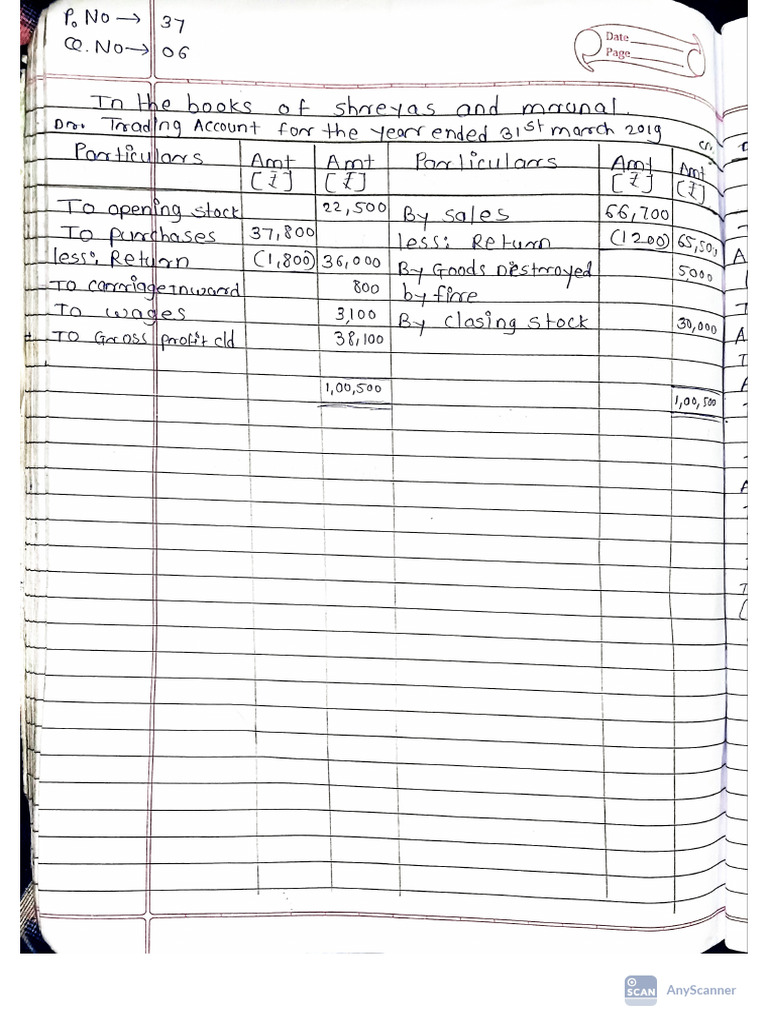 P. No → 37
Q. No → 06
Date
Page
In the books of shreyas and mrunal.
Dr. Trading Account for the year ended 31st march 2019 Cr.
Particulars Amt [₹] Amt [₹] Particulars Amt [₹] Amt [₹]
To opening stock 22,500 By sales 66,700
To purchases 37,800 less: Return (1200) 65,500
less: Return (1,800) 36,000 By Goods Destroyed 5,000
To carriage Inward 800 by fire
To wages 3,100 By closing stock 30,000
To Gross profit c/d 38,100
1,00,500 1,00,500
SCAN AnyScanner